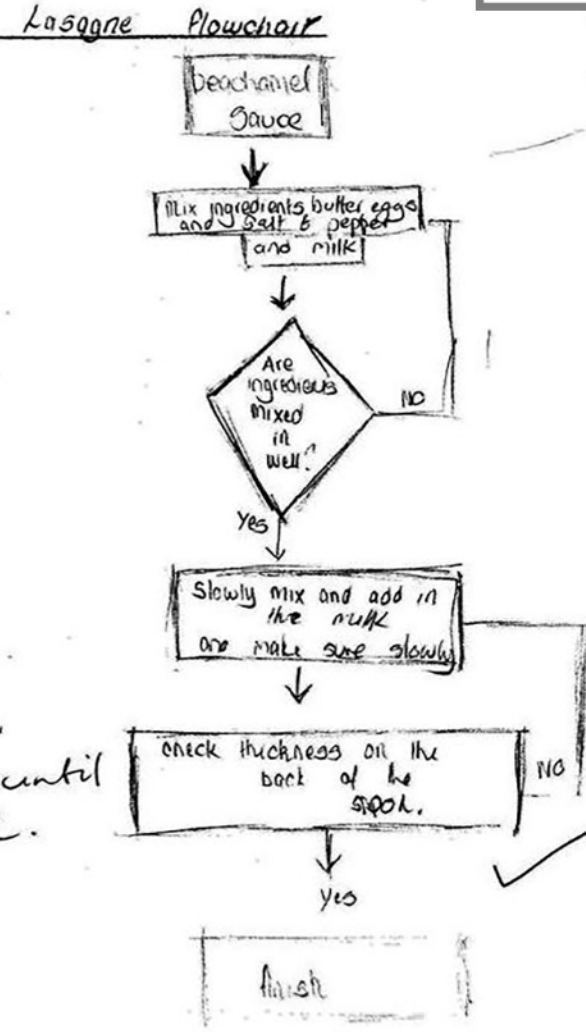 Lasagne Flowchart
beachamel
Sauce
Mix ingredients, butter eggs
and salt & pepper
and milk
Are
ingredieus
mixed
in
well?
NO
Yes
Slowly mix and add in
the milk
and make sure slowly
check thickness on the
back of the
spoon.
until
NO
Yes
finish